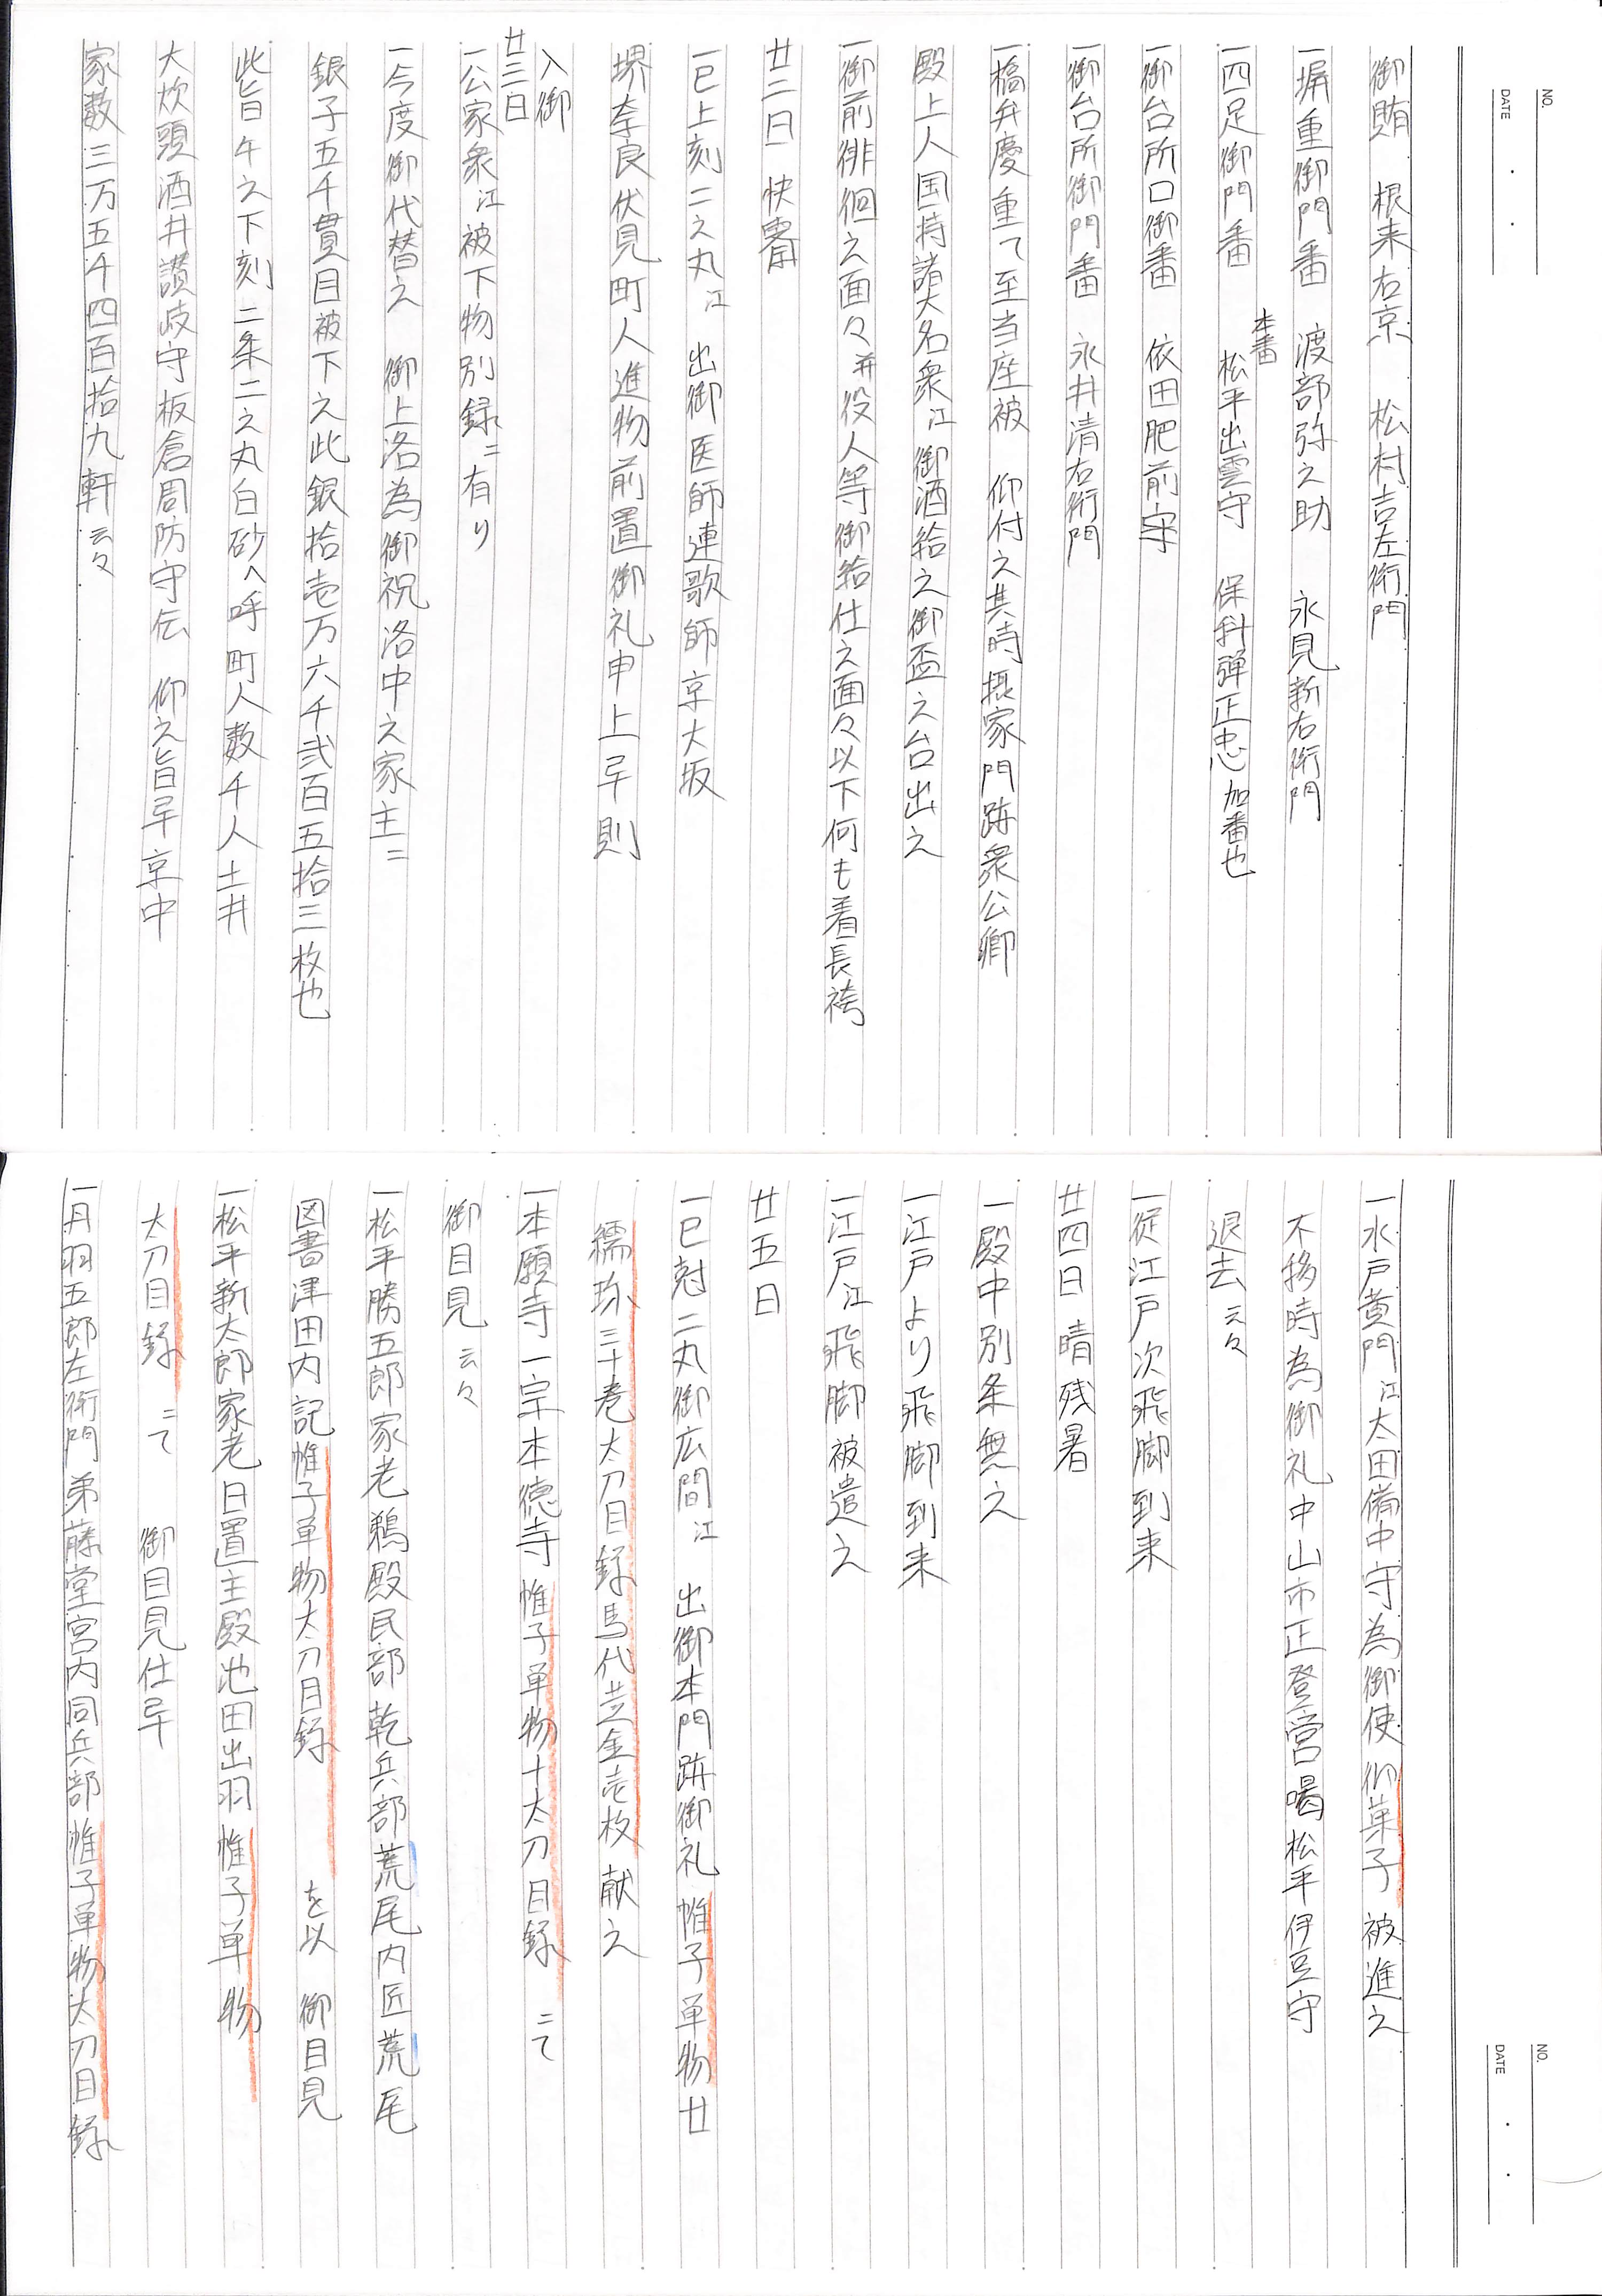 NO.
DATE
御賄　根来右京　松村吉左衛門
一塀重御門番　渡部弥之助　永見新右衛門
一四足御門番　本番　松平出雲守　保科弾正忠　加番也
一御台所口御番　依田肥前守
一御台所御門番　永井清右衛門
一橋弁慶重て至当座被　仰付之其時摂家門跡衆公卿
殿上人国持諸大名衆江御酒給之御盃之台出之
一御前徘徊之面々并役人等御給仕之面々以下何も着長袴
廿二日　快霽
一巳上刻二之丸江　出御医師連歌師京大坂
堺奈良伏見町人進物前置御礼申上早則
入御
廿三日
一公家衆江被下物別録ニ有り
一今度御代替之　御上洛為御祝洛中之家主ニ
銀子五千貫目被下之此銀拾壱万六千弐百五拾三枚也
此旨午之下刻二条二之丸白砂へ呼町人数千人土井
大炊頭酒井讃岐守板倉周防守伝　仰之旨早京中
家数三万五千四百拾九軒云々
NO.
DATE
一水戸黄門江太田備中守為御使御菓子被進之
不移時為御礼中山市正登営喝松平伊豆守
退去云々
一従江戸次飛脚到来
廿四日　晴残暑
一殿中別条無之
一江戸より飛脚到来
一江戸江飛脚被遣之
廿五日
一巳尅二丸御広間江　出御本門跡御礼帷子単物廿
繻珍三十巻太刀目録馬代黄金壱枚献之
一本願寺一宗本徳寺帷子単物十太刀目録ニて
御目見云々
一松平勝五郎家老鵜殿民部乾兵部荒尾内匠荒尾
図書津田内記帷子単物太刀目録　を以　御目見
一松平新太郎家老日置主殿池田出羽帷子単物
太刀目録ニて　御目見仕早
一丹羽五郎左衛門弟藤堂宮内同兵部帷子単物太刀目録